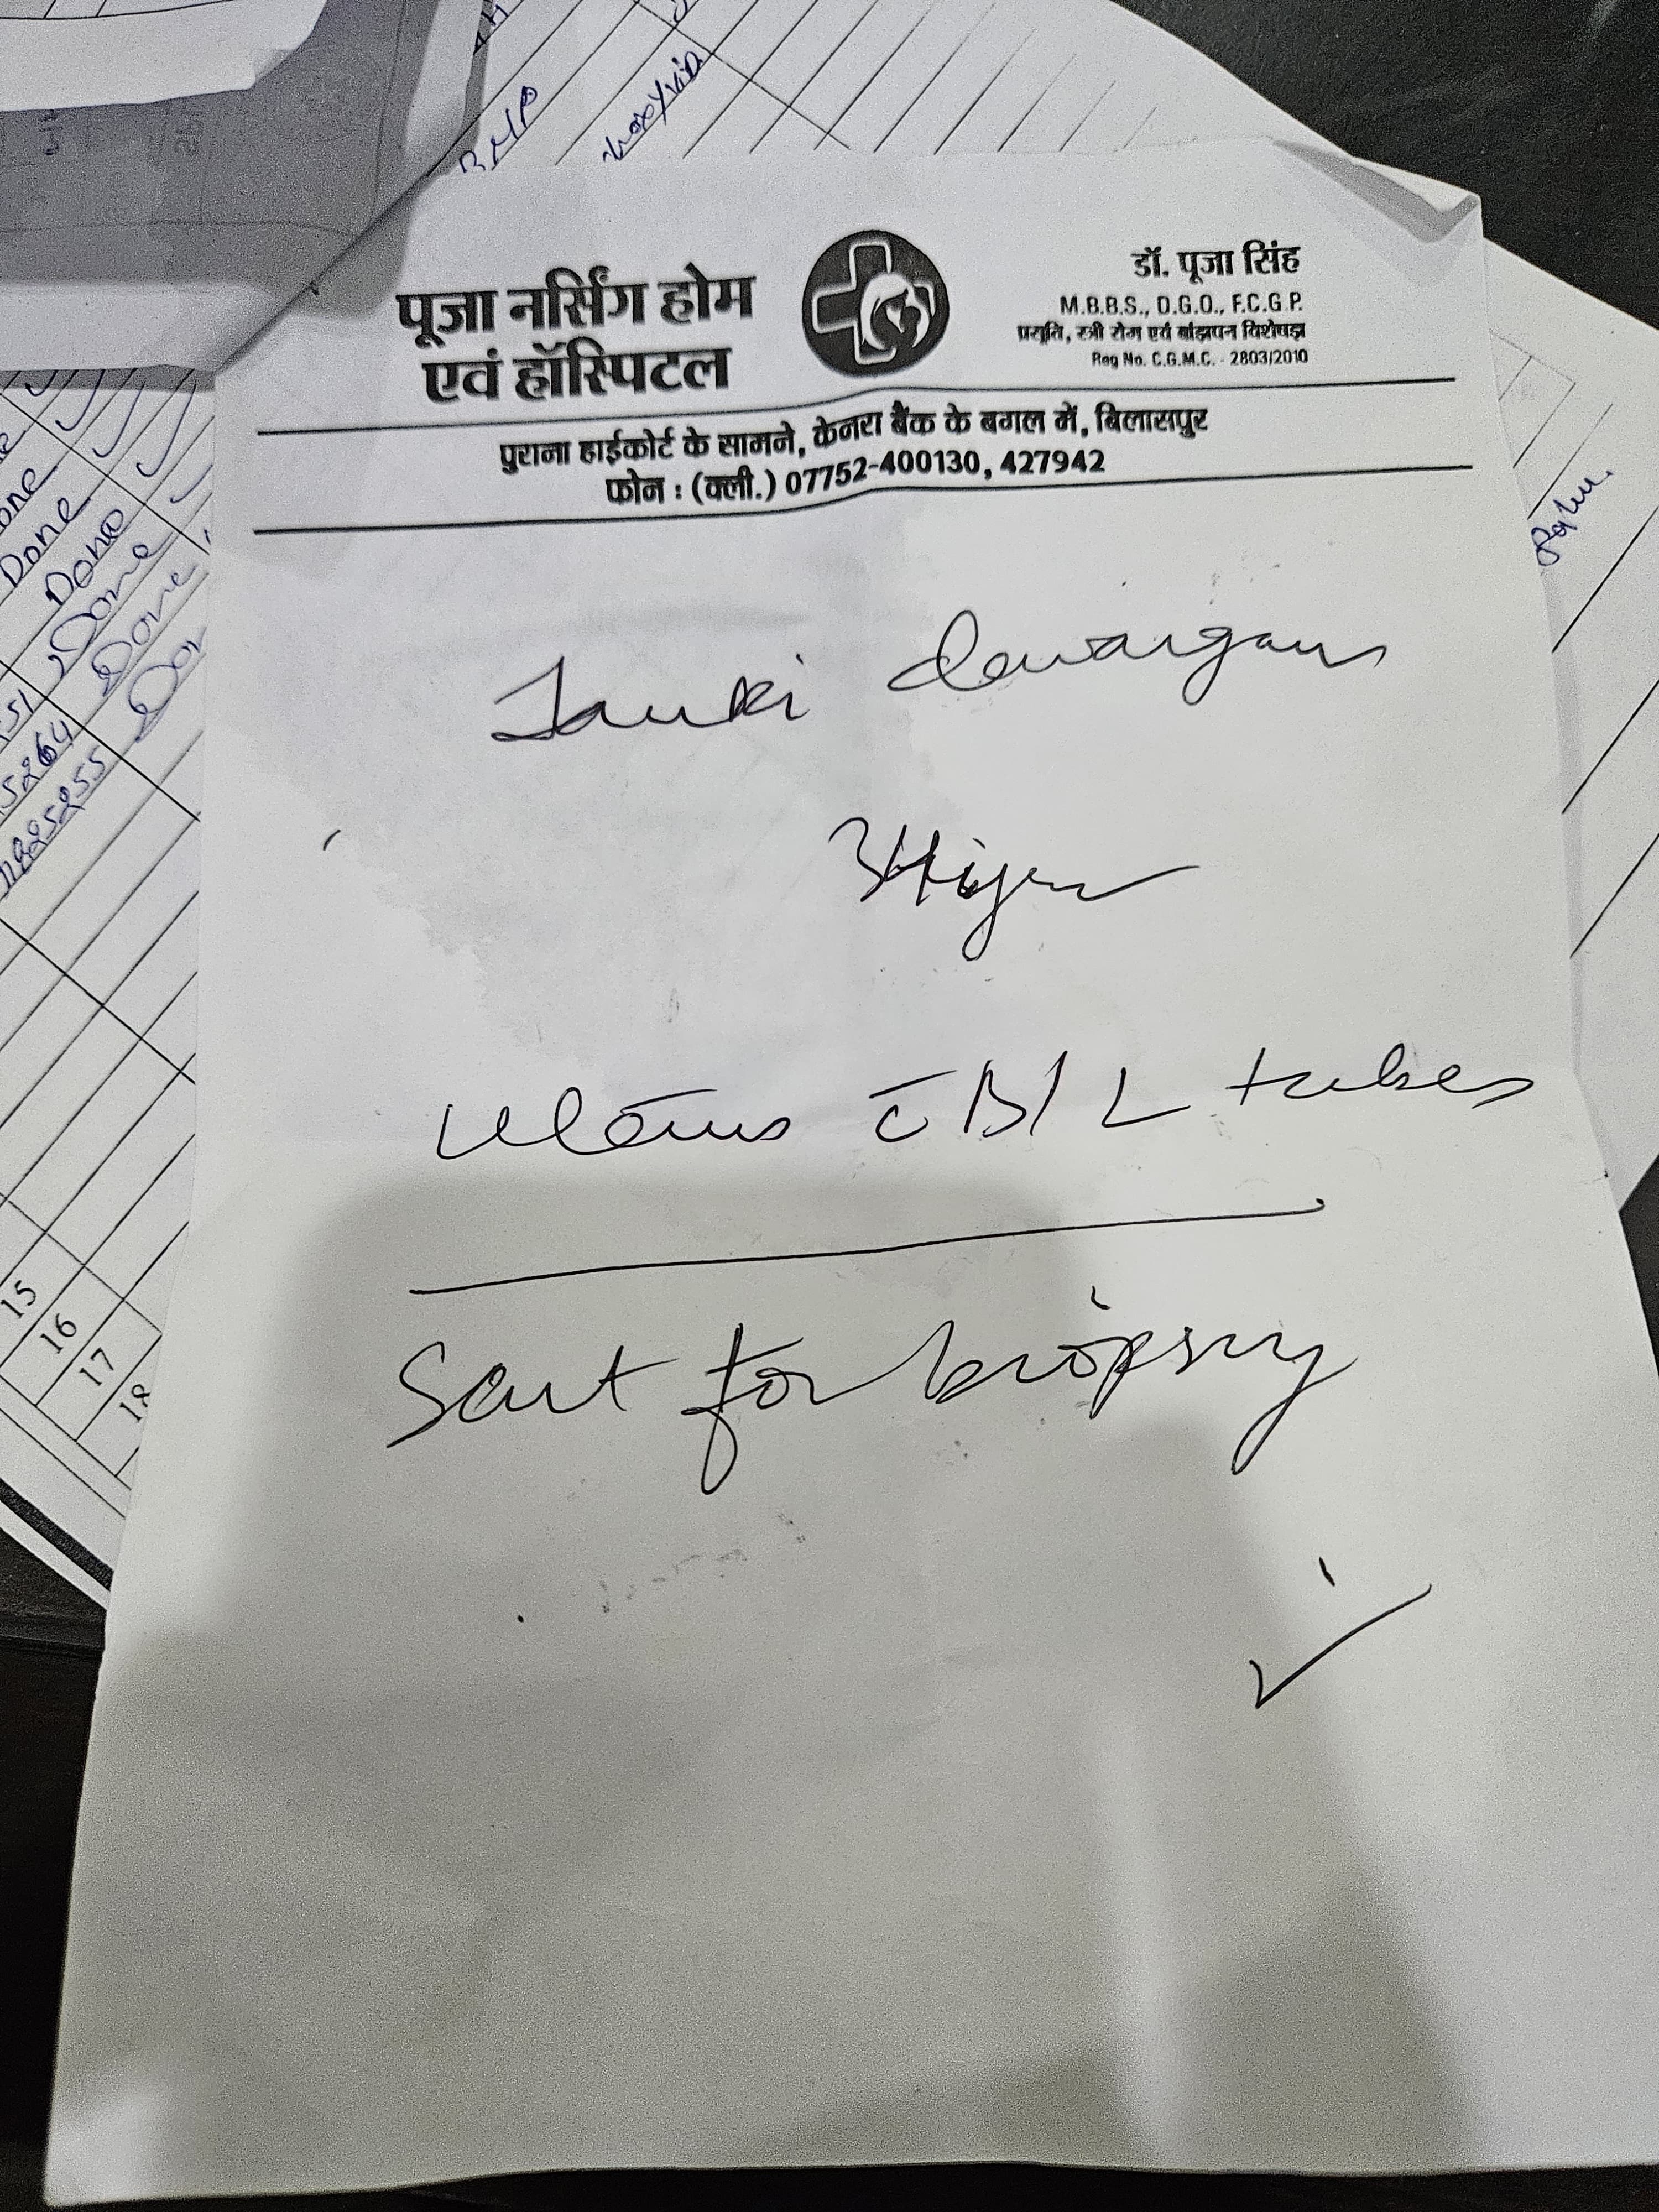 पूजा नर्सिंग होम
एवं हॉस्पिटल
डॉ. पूजा सिंह
M.B.B.S., D.G.O., F.C.G.P.
प्रसूति, स्त्री रोग एवं बांझपन विशेषज्ञ
Reg No. C.G.M.C. - 2803/2010
पुराना हाईकोर्ट के सामने, केनरा बैंक के बगल में, बिलासपुर
फोन : (क्ली.) 07752-400130, 427942
Janki dewangan
Uterus c̄ B/L tubes
Sent for biopsy
Done
Done
Done
Done
15
16
17
18